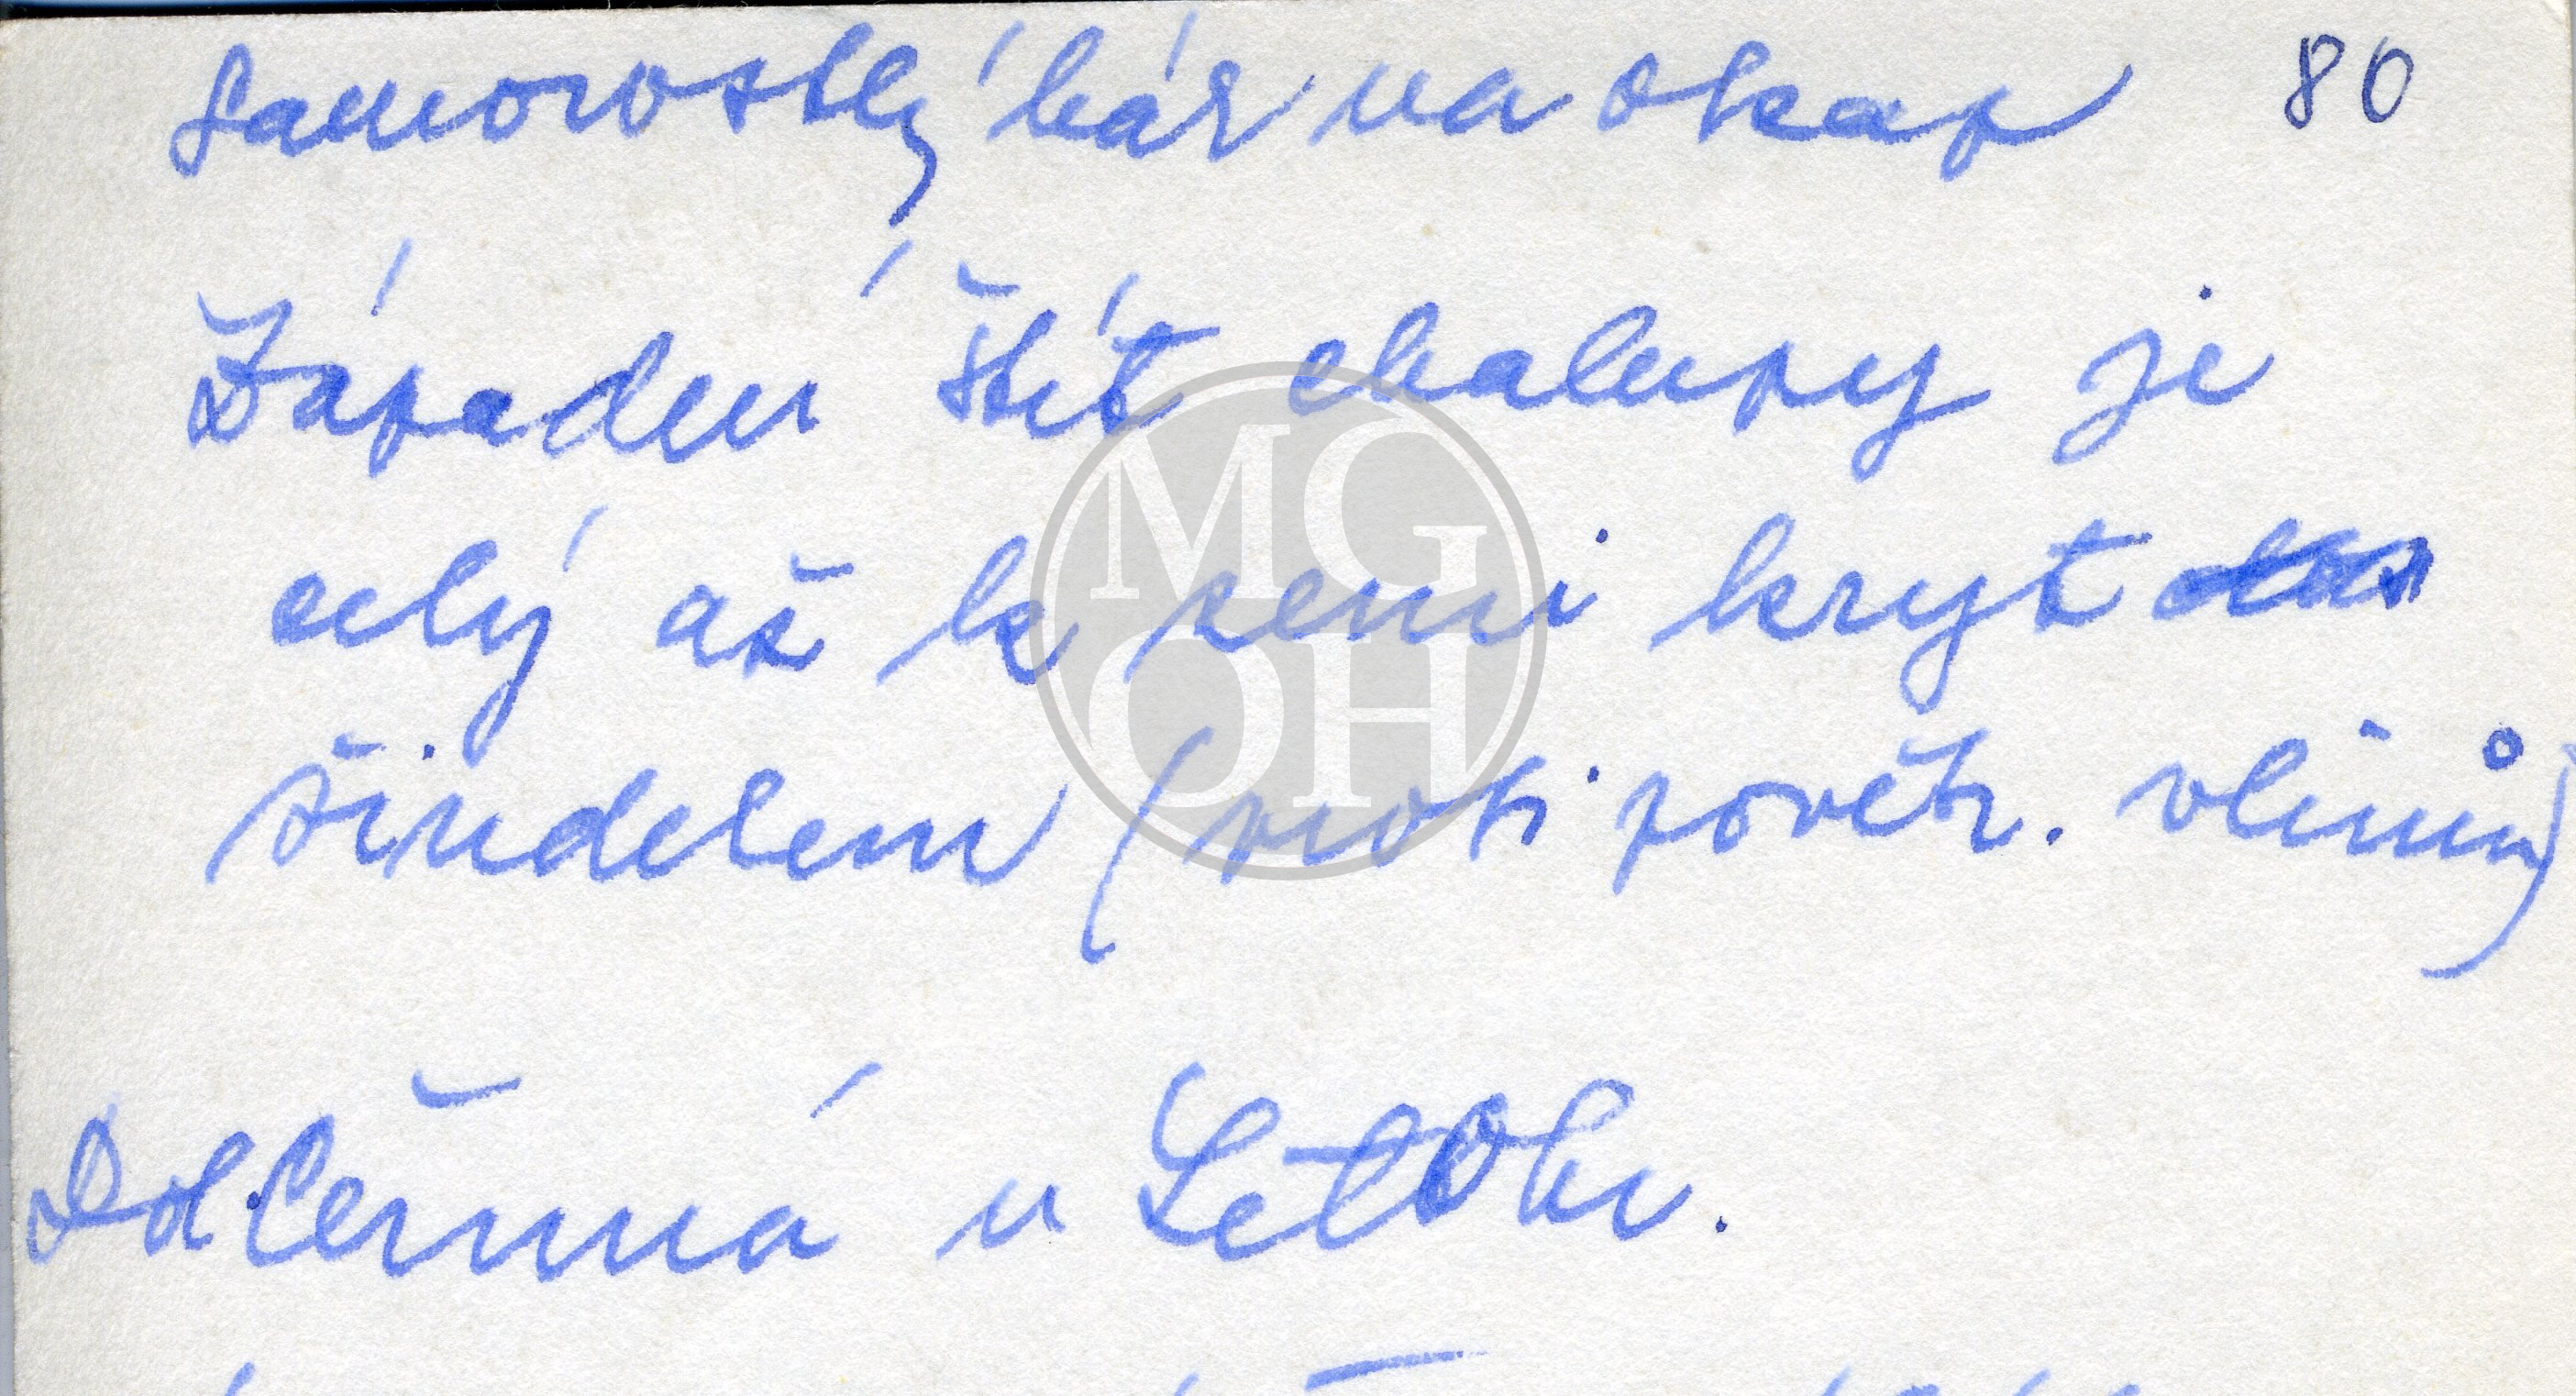 Samorostlý hák na okap 80
Západní štít chalupy je
celý až k zemi kryt
šindelem (proti povětr. vlivům)
Dol. Čermná u Letohr.
MG
OH